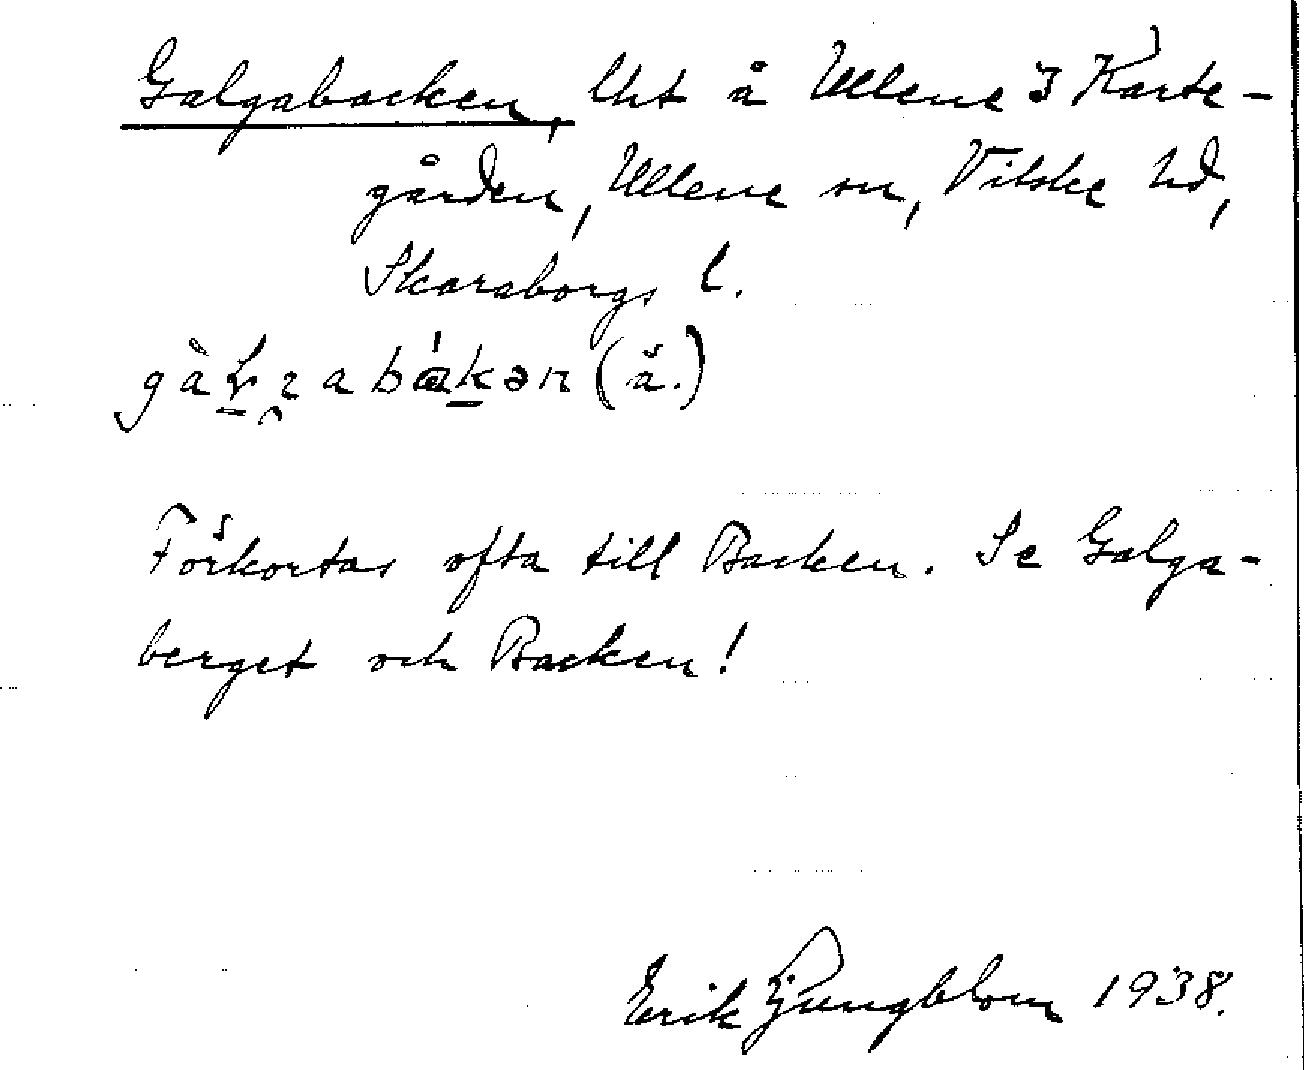 Galgabacken, lht å Ullene 3 Karte-
gården, Ullene sn, Vilske hd,
Skaraborgs l.
(ä.)
Förkortas ofta till Backen. Se Galga-
berget och Backen!
Erik Ljungblom 1938.